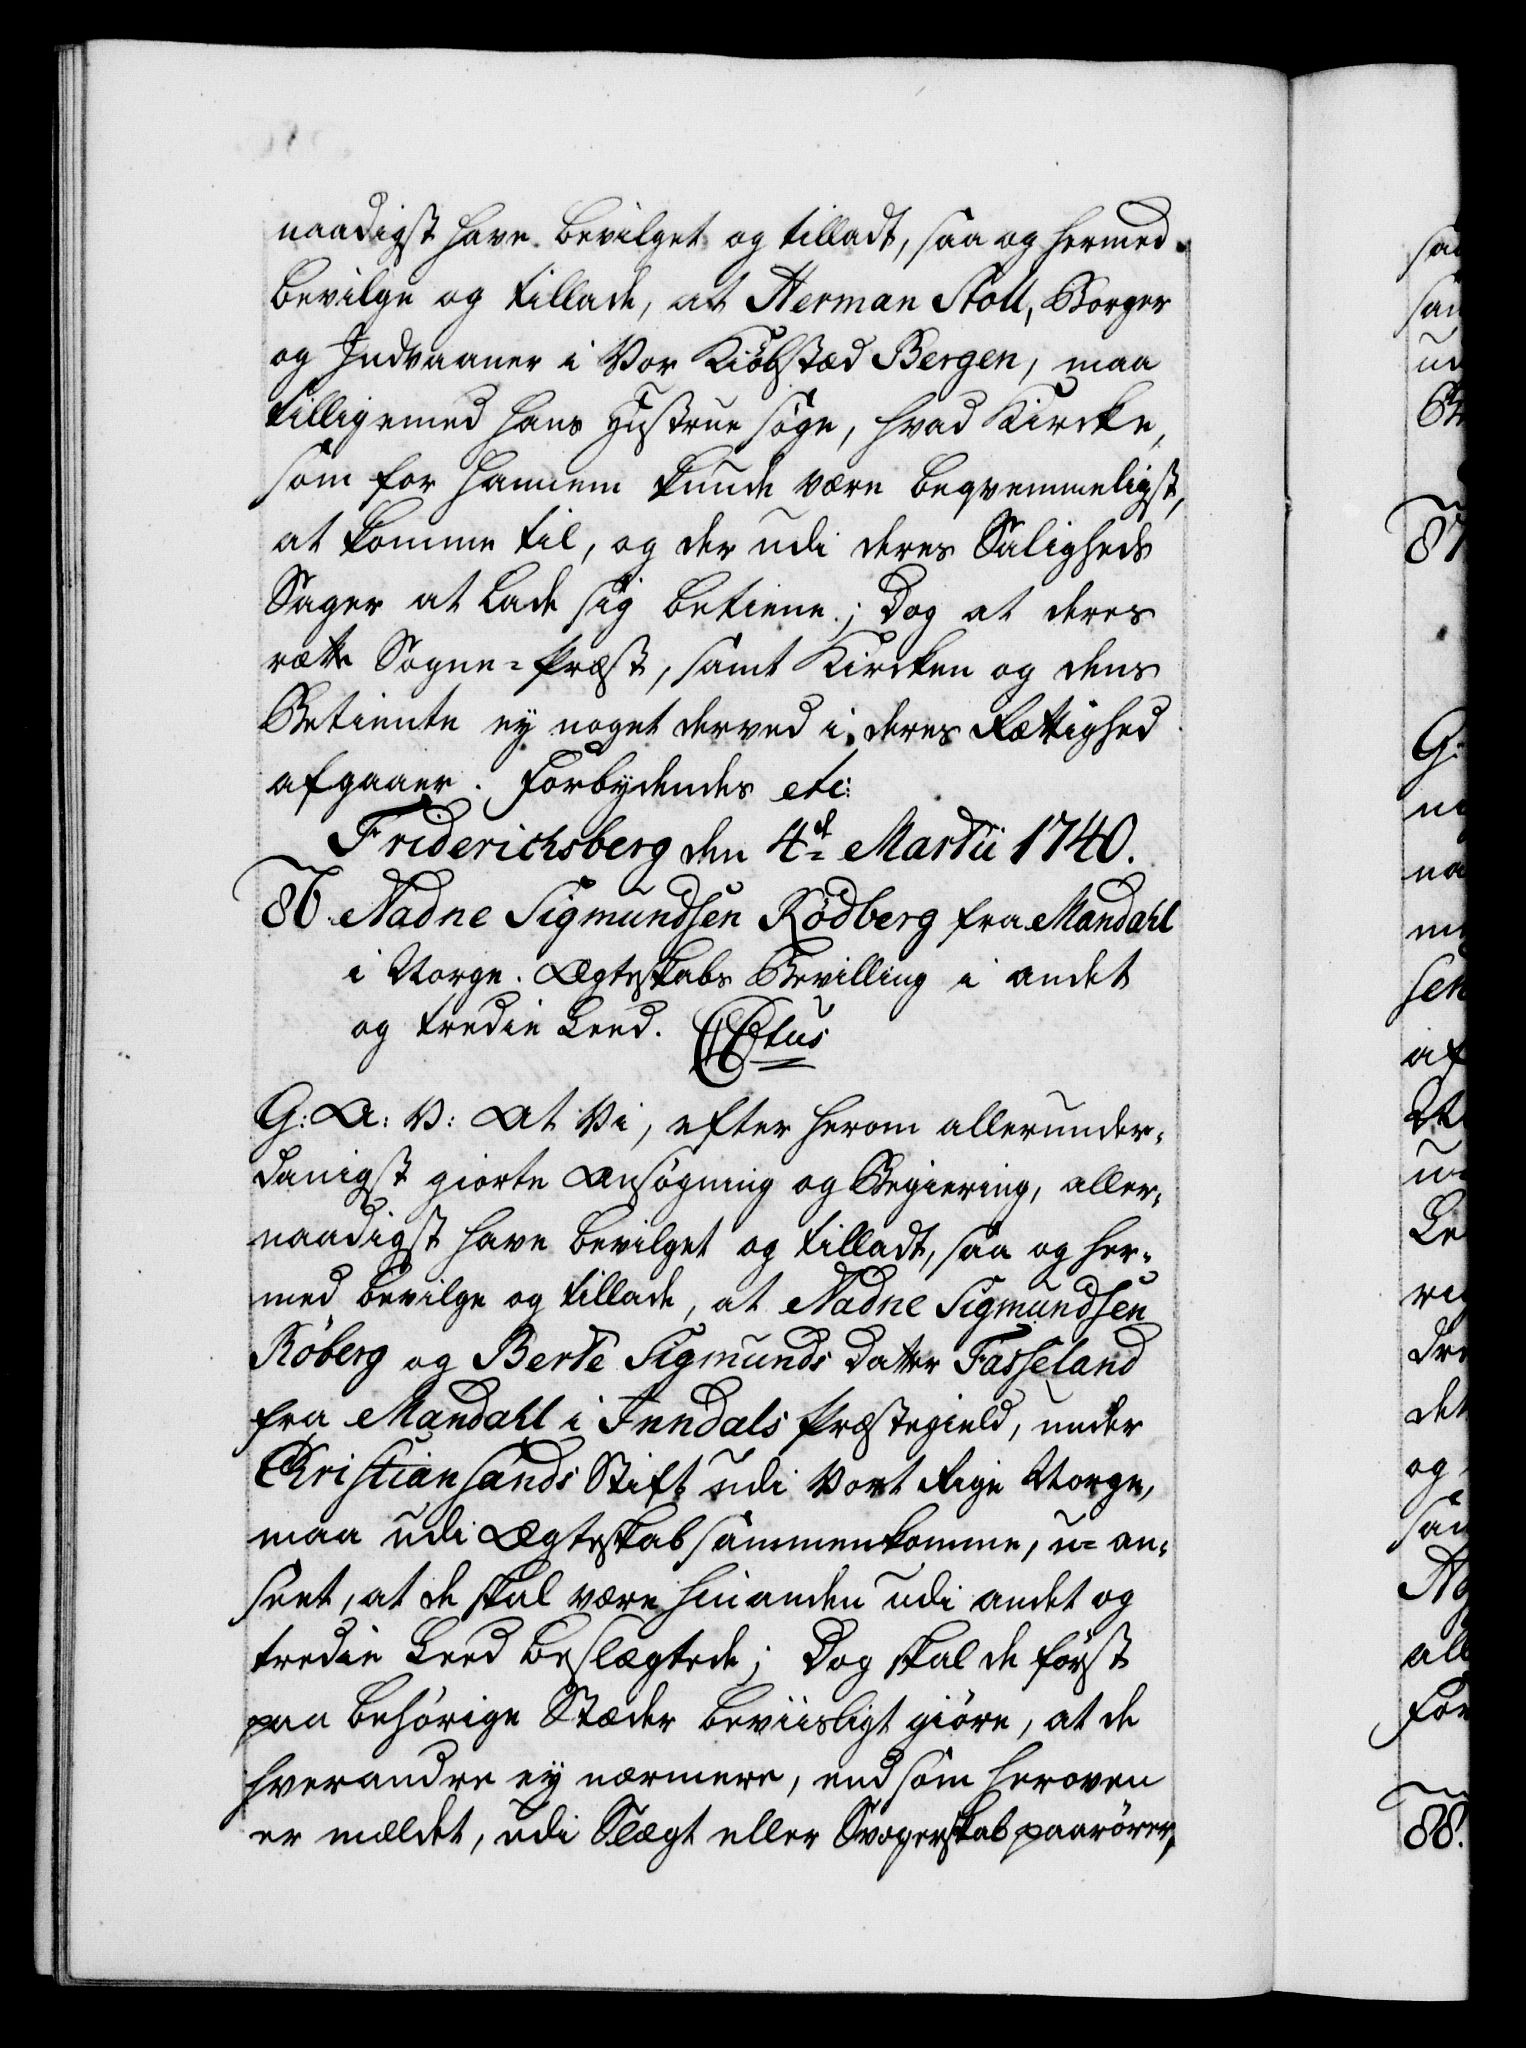 naadigst have bevilget og tilladt, saa og hermed
bevilge og tillade, at Herman Stoll, Borger
og Indvaaner i Vor Kiöbstæd Bergen, maa
tilligemed hans Hustrue söge, hvad Kircke,
som for hannem kunde være beqvemmeligst,
at komme til, og der udi deres Saligheds
Sager at lade sig betiene; Dog at deres
rætte Sogne=Præst, samt Kircken og dens
Betiente ey noget derved i deres Rættighed
afgaaer. Forbydendes etc:
Friderichsberg den 4de Martii 1740.
86. Nadne Sigmundsen Rödberg fra Mandahl
i Norge. Ægteskabs Bevilling i andet
og tredie Leed.
G: A: V: At Vi, efter herom allerunder-
danigst giorte Ansögning og Begiering, aller-
naadigst have bevilget og tilladt, saa og her-
med bevilge og tillade, at Nadne Sigmundsen
Röberg og Berte Sigmunds Datter Fasseland
fra Mandahl i Inndals Præstegield, under
Christiansands Stift udi Vort Rige Norge,
maa udi Ægteskab sammenkomme, u=an-
seet, at de skal være hinanden udi andet og
tredie Leed beslægtede; Dog skal de först
paa behörige Stæder beviisligt giöre, at de
hverandre ey nærmere, end som heroven
er meldet, udi Slægt eller Svogerskab paarörer,
87
88.